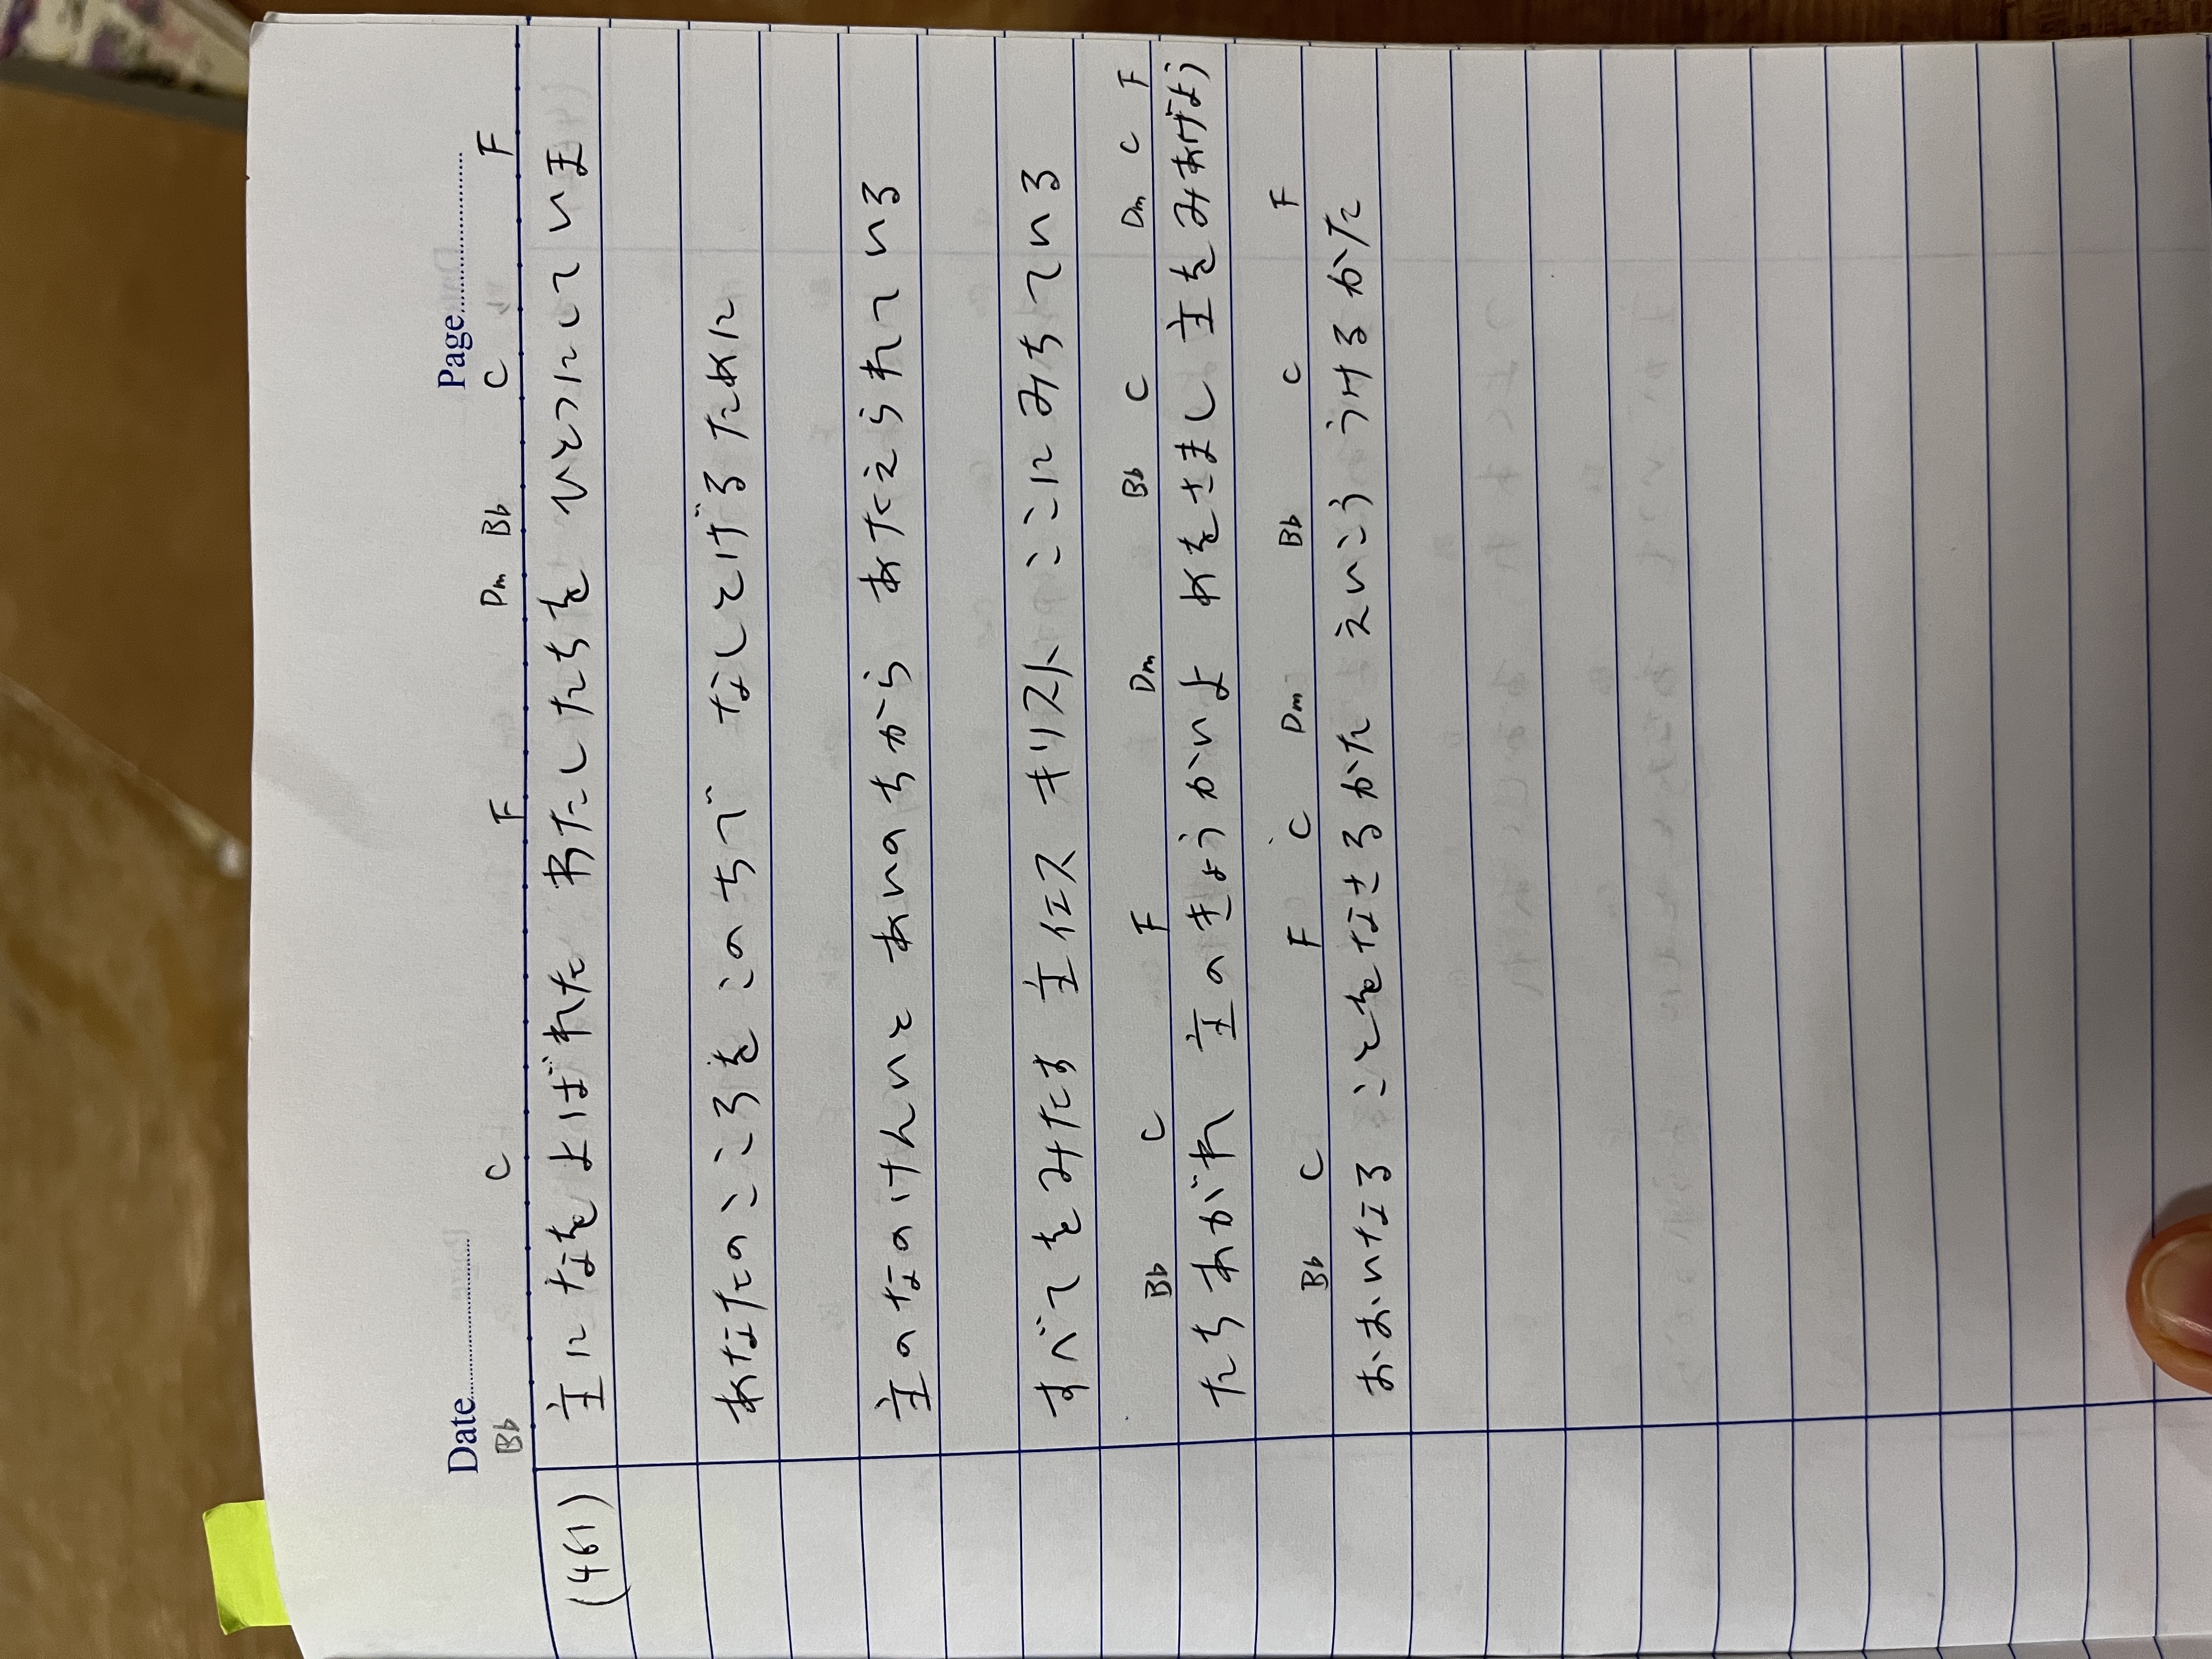 Date Page
Bb C F Dm Bb C F
(461) 主に なを よばれた わたしたちを ひとつにして いま
あなたの こころを このちで なしとげる ために
主の なの けんいと あいの ちから あたえられて いる
すべてを みたす 主イエス キリスト ここに みちて いる
Bb C F Dm Bb C Dm C F
たちあがれ 主の きょうかいよ めをさまし 主を みあげよう
Bb C F C Dm Bb C F
おおいなる ことを なさる かた えいこう うける かた